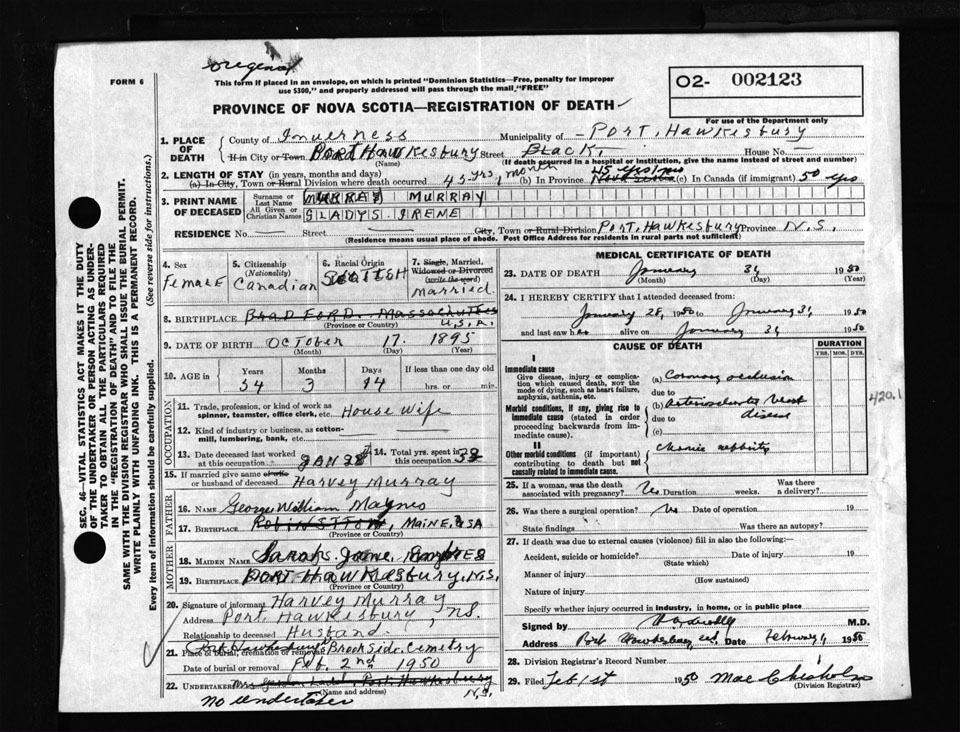 original
FORM 6
This form if placed in an envelope, on which is printed "Dominion Statistics—Free, penalty for improper
use $300," and properly addressed will pass through the mail "FREE"
O2- 002123
PROVINCE OF NOVA SCOTIA—REGISTRATION OF DEATH
For use of the Department only
1. PLACE OF DEATH
County of Inverness Municipality of - Port Hawkesbury
If in City or Town Port Hawkesbury Street Black. House No. —
(Name) (If death occurred in a hospital or institution, give the name instead of street and number)
2. LENGTH OF STAY (in years, months and days)
(a) In City, Town or Rural Division where death occurred 45 yrs, 1 month (b) In Province 45 yrs/1 mo Nova Scotia (c) In Canada (if immigrant) 50 yrs
3. PRINT NAME OF DECEASED
Surname or Last Name MURRAY
All Given or Christian Names GLADYS IRENE
RESIDENCE No. — Street — City, Town or Rural Division Port Hawkesbury Province N.S.
(Residence means usual place of abode. Post Office Address for residents in rural parts not sufficient)
4. Sex Female
5. Citizenship (Nationality) Canadian
6. Racial Origin SCOTTISH
7. Single, Married, Widowed or Divorced (write the word) married.
8. BIRTHPLACE BRADFORD. Massachuttes U.S.A.
(Province or Country)
9. DATE OF BIRTH OCTOBER 17. 1895
(Month) (Day) (Year)
10. AGE in Years 54 Months 3 Days 14 If less than one day old
hrs. or min.
OCCUPATION
11. Trade, profession, or kind of work as spinner, teamster, office clerk, etc. House Wife
12. Kind of industry or business, as cotton-mill, lumbering, bank, etc. —
13. Date deceased last worked at this occupation JAN 28 14. Total yrs. spent in this occupation 32
15. If married give name of wife or husband of deceased Harvey Murray
FATHER
16. NAME George William Maynes
17. BIRTHPLACE ROBINSTTOW, MAINE, USA
(Province or Country)
MOTHER
18. MAIDEN NAME Sarah Jane
19. BIRTHPLACE PORT HAWKESBURY. N.S.
(Province or Country)
20. Signature of informant Harvey Murray
Address Port Hawkesbury, NS.
Relationship to deceased Husband.
21. Place of burial, cremation or removal Port Hawkesbury Brookside. Cemetry
Date of burial or removal Feb. 2nd 1950
22. UNDERTAKER Mrs Port Hawkesbury N.S.
(Name and address)
no undertaker
MEDICAL CERTIFICATE OF DEATH
23. DATE OF DEATH January 31 1950
(Month) (Day) (Year)
24. I HEREBY CERTIFY that I attended deceased from
January 28, 1950 to January 31, 1950
and last saw her alive on January 31 1950
CAUSE OF DEATH
DURATION
YRS. MOS. DYS.
I
Immediate cause
Give disease, injury or complication which caused death, not the mode of dying, such as heart failure, asphyxia, asthenia, etc.
(a) Coronary occlusion
due to
Morbid conditions, if any, giving rise to immediate cause (stated in order proceeding backwards from immediate cause).
(b) Arteriosclerotic heart disease
due to
(c)
420.1
II
Other morbid conditions (if important) contributing to death but not causally related to immediate cause.
Chronic nephritis
25. If a woman, was the death associated with pregnancy? No Duration weeks. Was there a delivery?
26. Was there a surgical operation? No Date of operation 19
State findings Was there an autopsy?
27. If death was due to external causes (violence) fill in also the following:—
Accident, suicide or homicide? Date of injury 19
(State which)
Manner of injury
(How sustained)
Nature of injury
Specify whether injury occurred in industry, in home, or in public place
Signed by M.D.
Address Port Hawkesbury Date February 1, 1950
28. Division Registrar's Record Number
29. Filed Feb 1st 1950 Mae Chisholm
(Division Registrar)
SEC. 46—VITAL STATISTICS ACT MAKES IT THE DUTY
OF THE UNDERTAKER OR PERSON ACTING AS UNDER-
TAKER TO OBTAIN ALL THE PARTICULARS REQUIRED
IN THE "REGISTRATION OF DEATH" AND TO FILE THE
SAME WITH THE DIVISION REGISTRAR WHO SHALL ISSUE THE BURIAL PERMIT.
WRITE PLAINLY WITH UNFADING INK. THIS IS A PERMANENT RECORD.
Every item of information should be carefully supplied. (See reverse side for instructions.)